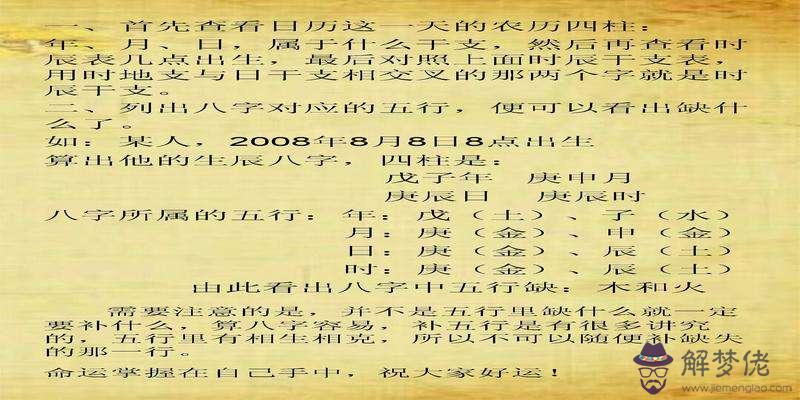 一、首先查看日历这一天的农历四柱：
年、月、日，属于什么干支，然后再查看时
辰表几点出生，最后对照上面时辰干支表，
用时地支与日干支相交叉的那两个字就是时
辰干支。
二、列出八字对应的五行，便可以看出缺什
么了。
如：某人，2008年8月8日8点出生
算出他的生辰八字，四柱是：
戊子年 庚申月
庚辰日 庚辰时
八字所属的五行：年：戊（土）、子（水）
月：庚（金）、申（金）
日：庚（金）、辰（土）
时：庚（金）、辰（土）
由此看出八字中五行缺：木和火
需要注意的是，并不是五行里缺什么就一定
要补什么，算八字容易，补五行是有很多讲究
的，五行里有相生相克，所以不可以随便补缺失
的那一行。
命运掌握在自己手中，祝大家好运！
解梦佬
www.jiemenglao.com